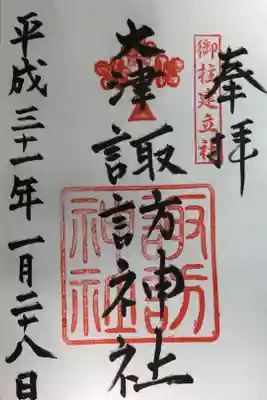 奉拝
御柱建立社
大津諏訪神社
諏訪神社
平成三十一年一月二十八日